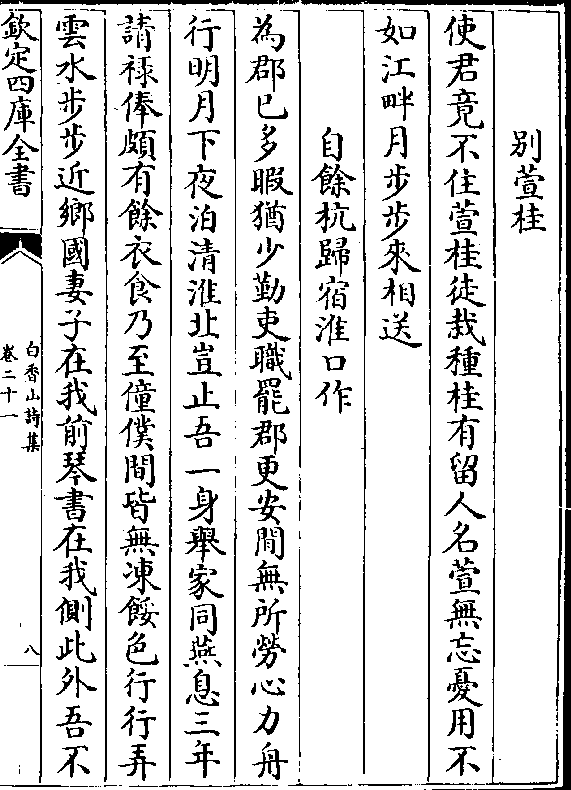 别萱桂
使君竟不住萱桂徒栽種桂有留人名萱無忘憂用不
如江畔月步步來相送
自餘杭歸宿淮口作
為郡已多暇猶少勤吏職罷郡更安閒無所勞心力舟
行明月下夜泊清淮北豈止吾一身舉家同燕息三年
請祿俸頗有餘衣食乃至僮僕間皆無凍餒色行行弄
雲水步步近鄉國妻子在我前琴書在我側此外吾不
欽定四庫全書
白香山詩集
卷二十一
八